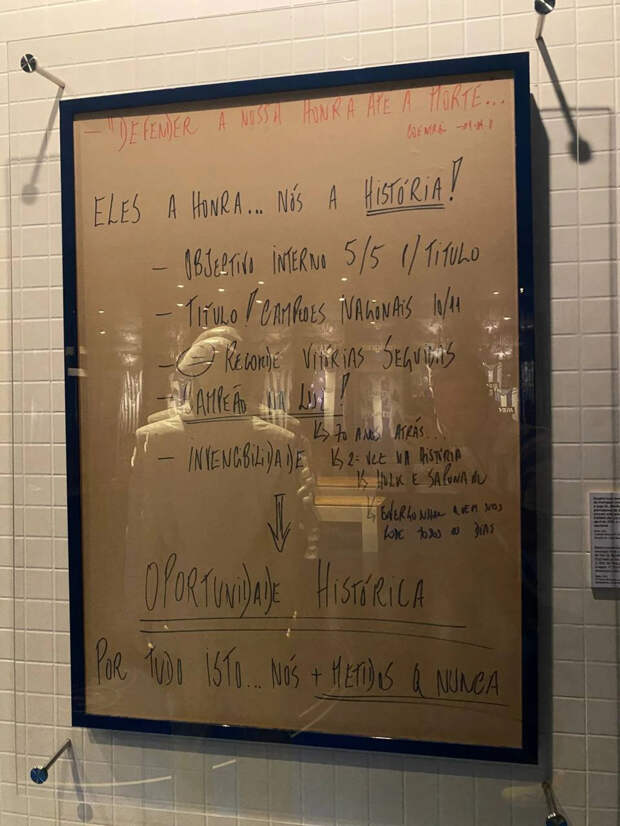 — "DEFENDER A NOSSA HONRA ATÉ A MORTE...
ELES A HONRA... NÓS A HISTÓRIA!
— OBJECTIVO INTERNO 5/5 1/TITULO
— TITULO! CAMPEÕES NACIONAIS 10/11
— RECORDE VITÓRIAS SEGUIDAS
— CAMPEÃO NA LUZ!
↳ 70 ANOS ATRÁS...
— INVENCIBILIDADE ↳ 2ª VEZ NA HISTÓRIA
↳ HULK E SAPUNARU
↳ ENVERGONHAR QUEM NOS
FODE TODOS OS DIAS
⇓
OPORTUNIDADE HISTÓRICA
POR TUDO ISTO... NÓS + METIDOS Q NUNCA